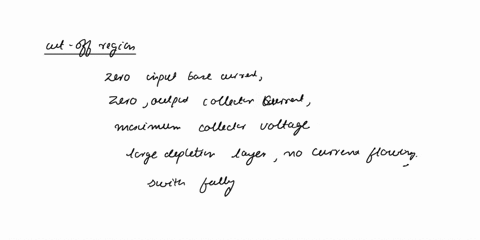 cut-off region
zero input base current,
zero, output collector current,
maximum collector voltage
large depletion layer, no current flowing.
swith fully